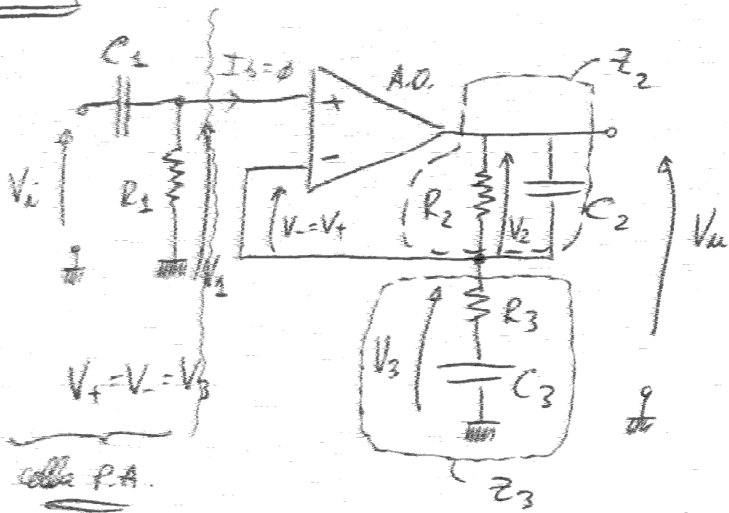 C1
Ib=ø
A.O.
Z2
+
-
Vi
R1
V1
V-=V+
R2
V2
C2
Vu
R3
V3
C3
V+=V-=V3
cella P.A.
Z3